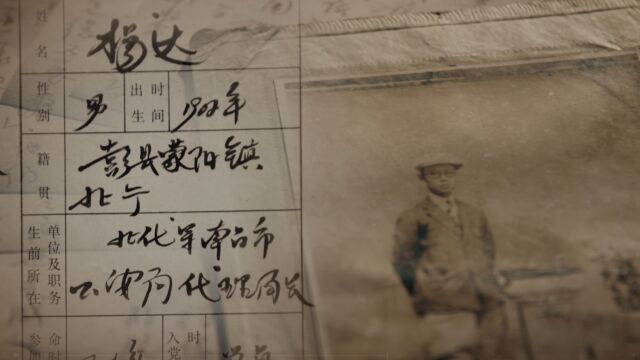 姓名 杨达
性别 男 出生时间 1902年
籍贯 彭县蒙阳镇
北宁
生前所在单位及职务 北伐军南昌市
公安局代理局长
参加
命时
入党
时